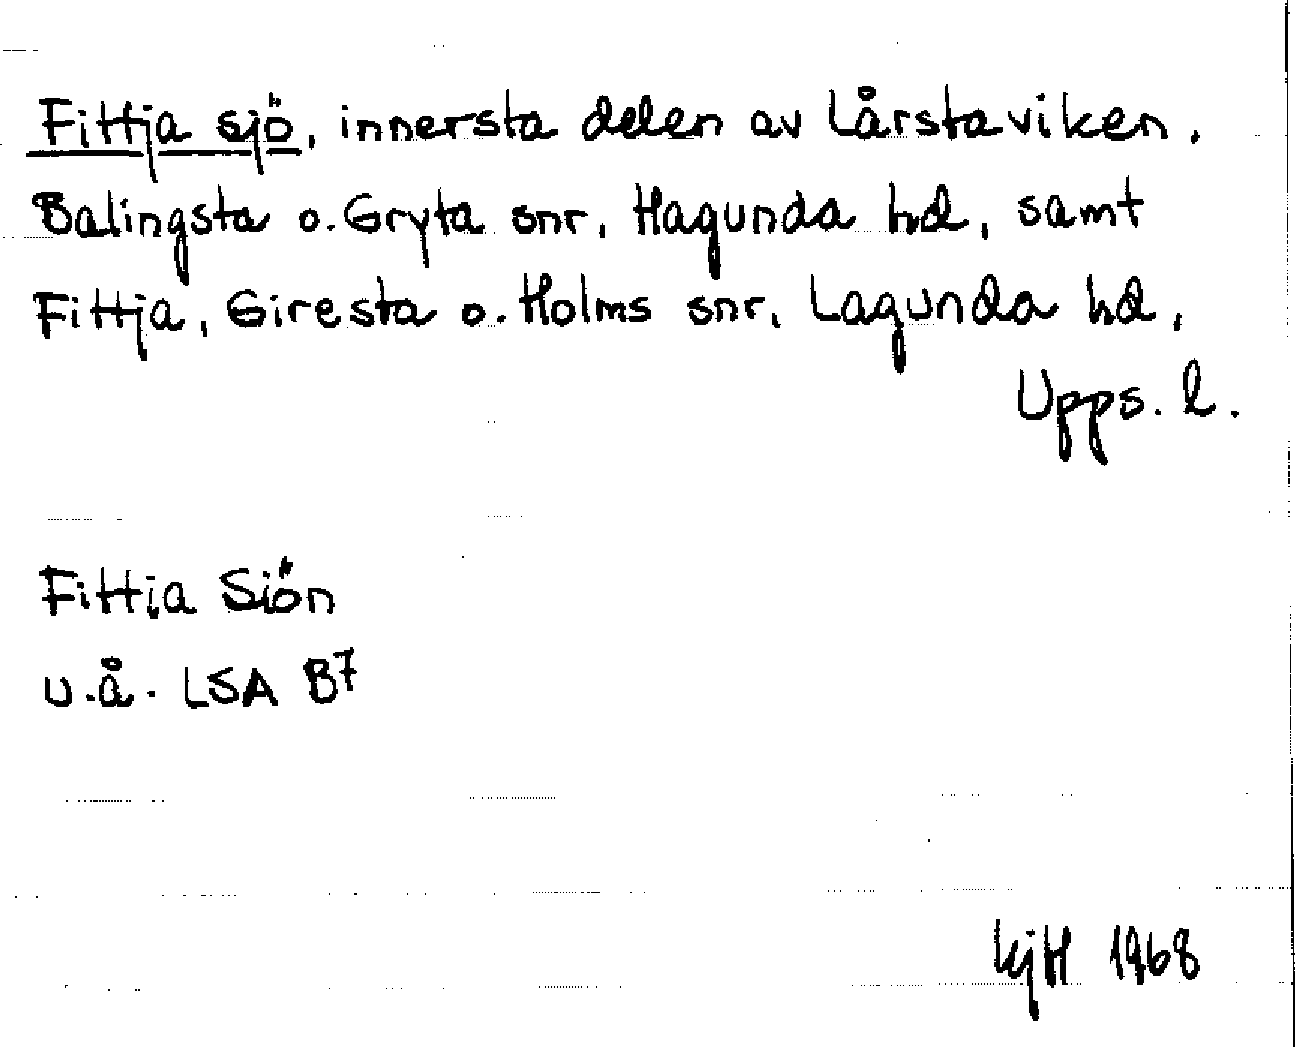 Fittja sjö, innersta delen av Lårstaviken.
Balingsta o. Gryta snr, Hagunda hd, samt
Fittja, Giresta o. Holms snr, Lagunda hd,
Upps. l.
Fittia Siön
u.å. LSA B7
KjH 1968